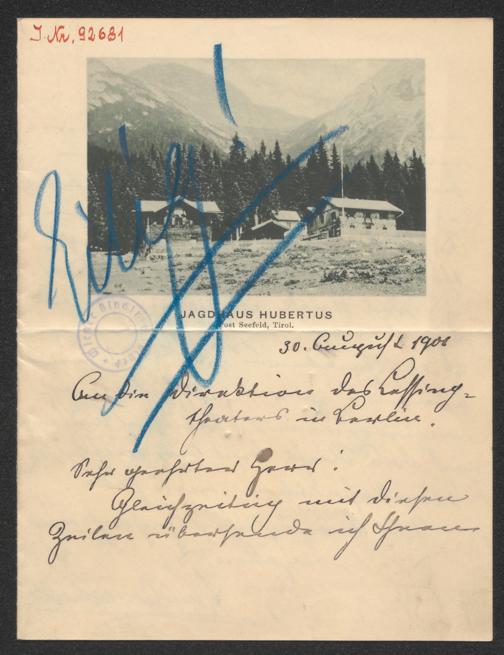 I. Nr, 92681
JAGDHAUS HUBERTUS
Post Seefeld, Tirol.
30. August 1901
An die Direktion des Lessing-
theaters in Berlin.
Sehr geehrter Herr!
Gleichzeitig mit diesen
Zeilen übersende ich Ihnen